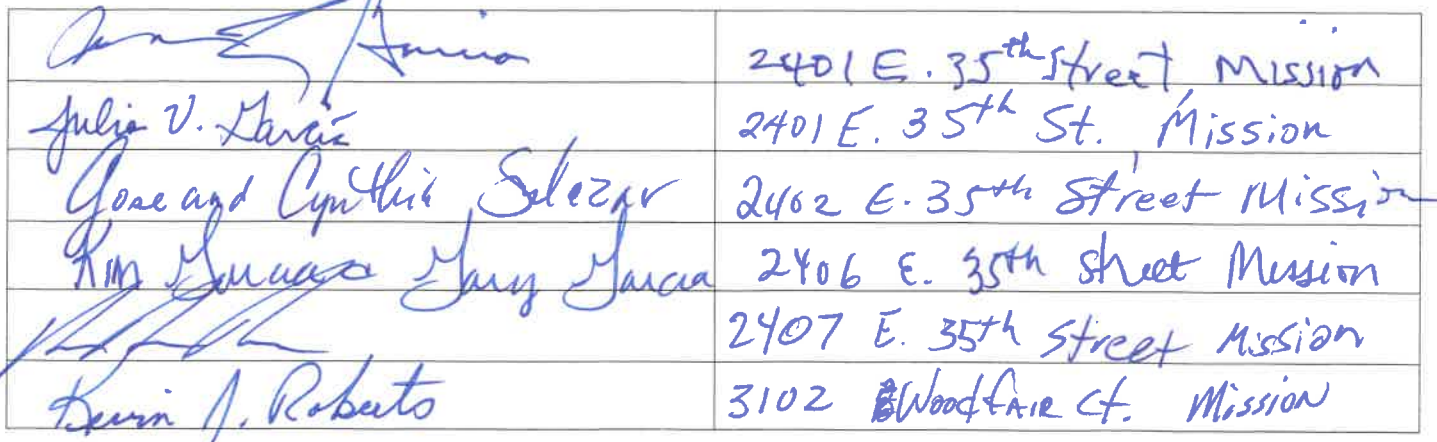 Garcia 2401 E. 35th Street Mission
Julia V. Garcia 2401 E. 35th St. Mission
Jose and Cynthia Salazar 2402 E. 35th Street Mission
Kim Gary Garcia 2406 E. 35th Street Mission
2407 E. 35th Street Mission
Kevin J. Roberts 3102 Woodfair Ct. Mission